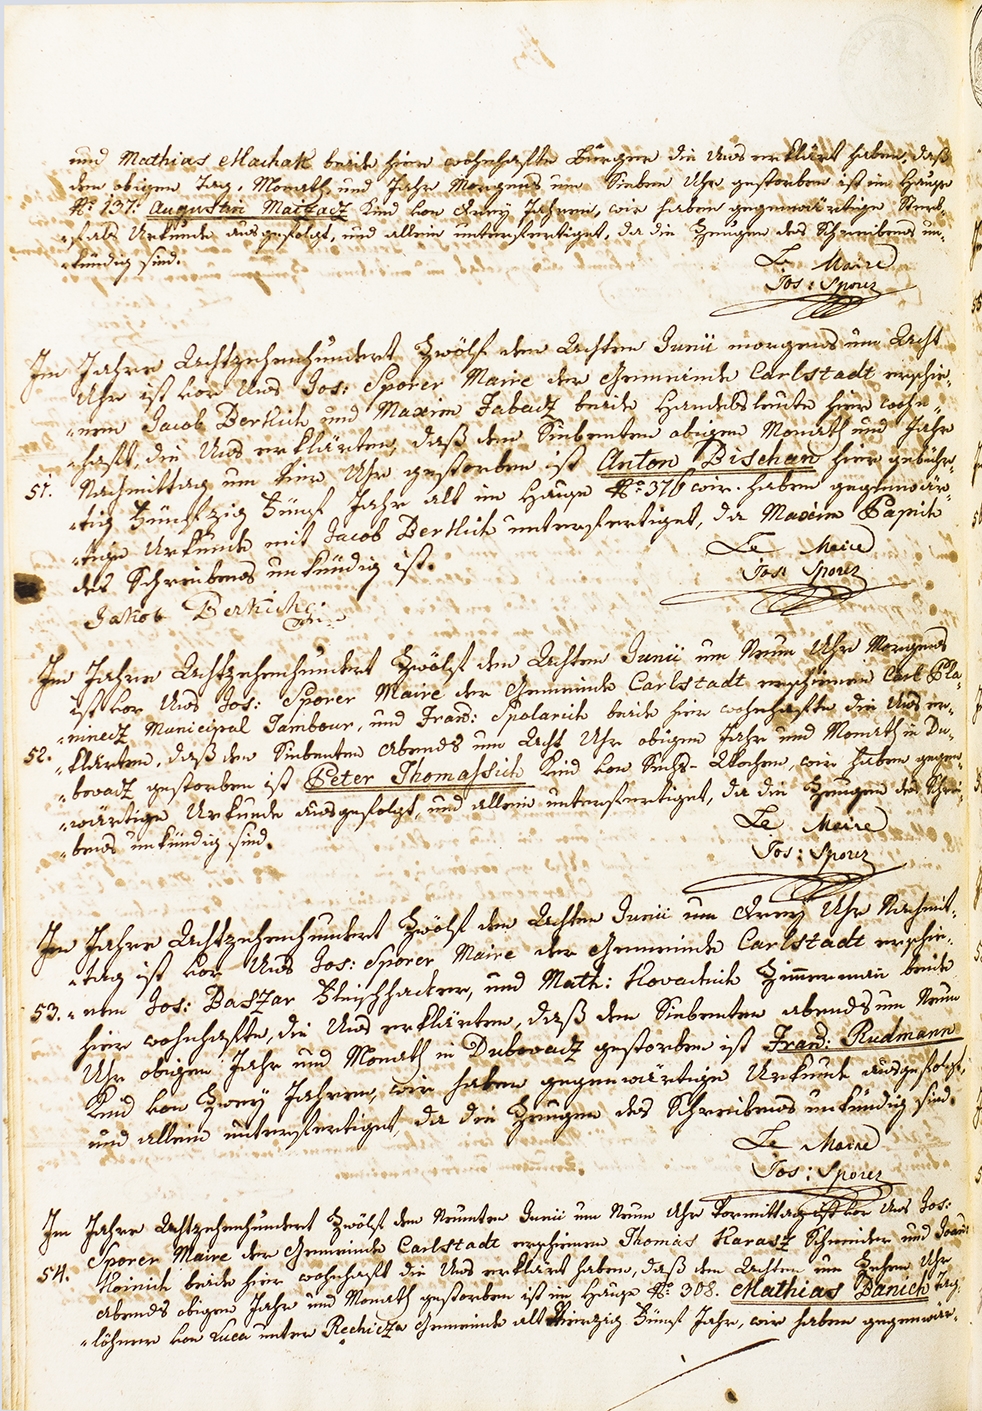 und Mathias Machak beide hier wohnhafte Bürger die Uns erklärt haben, daß
den obigen Tag, Monath und Jahr Morgens um Sieben Uhr gestorben ist im Hause
No 137: Augustin Matzadz Kind von Drey Jahren, wir haben gegenwärtige Sterb-
-falls Urkunde ausgefolgt, und allein unterfertiget, da die Zeugen des Schreibens un-
-kündig sind.
Le Maire
Jos: Sporer
Im Jahre Achtzehenhundert Zwölf den Achten Junii morgens um Acht
Uhr ist vor Uns Jos: Sporer Maire der Gemeinde Carlstadt erschie-
-nen Jacob Bertich und Maxim Jabadz beide Handelsleute hier wohn-
-haft, die Uns erklärten, daß den Siebenten obigen Monath und Jahr
51. Nachmittag um vier Uhr gestorben ist Anton Bischan hier gebühr-
-tig Fünfzig Fünf Jahr alt im Hause No 370 wir haben gegenwär-
-tige Urkunde mit Jacob Bertich unterfertiget, da Maxim
des Schreibens unkündig ist.
Le Maire
Jos: Sporer
Jakob
Im Jahre Achtzehenhundert Zwölf den Achten Junii um Neun Uhr Morgens
ist vor Uns Jos: Sporer Maire der Gemeinde Carlstadt erschienen Carl Pla-
-ninedz Municipal Tambour, und Franz: Spolarich beide hier wohnhafte die Uns er-
52. -klärten, daß den Siebenten Abends um Acht Uhr obigen Jahr und Monath in Du-
-bovadz gestorben ist Peter Thomassich Kind von Sechs Wochen, wir haben gegen-
-wärtige Urkunde ausgefolgt, und allein unterfertiget, da die Zeugen des Schrei-
-bens unkündig sind.
Le Maire
Jos: Sporer
Im Jahre Achtzehenhundert Zwölf den Achten Junii um Drey Uhr Nachmit-
-tag ist vor Uns Jos: Sporer Maire der Gemeinde Carlstadt erschie-
53. -nen Jos: Baszar Fleischhacker, und Math: Kovachich Zimmerman beide
hier wohnhafte, die Uns erklärten, daß den Siebenten abends um Neun
Uhr obigen Jahr und Monath in Dubovadz gestorben ist Franz: Rudmann
Kind von Zwey Jahren, wir haben gegenwärtige Urkunde ausgefolgt,
und allein unterfertiget, da die Zeugen des Schreibens unkündig sind.
Le Maire
Jos: Sporer
Im Jahre Achtzehenhundert Zwölf den Neunten Junii um Neun Uhr Vormittag ist vor Uns Jos:
Sporer Maire der Gemeinde Carlstadt erschienen Thomas Karasz Schneider und
54. beide hier wohnhaft die Uns erklärt haben, daß den Achten um Zehen Uhr
Abends obigen Jahr und Monath gestorben ist im Hause No 308. Mathias Banich Tag-
-löhner von Luca unter Rechicza Gemeinde alt Vierzig Fünf Jahr, wir haben gegenwär-